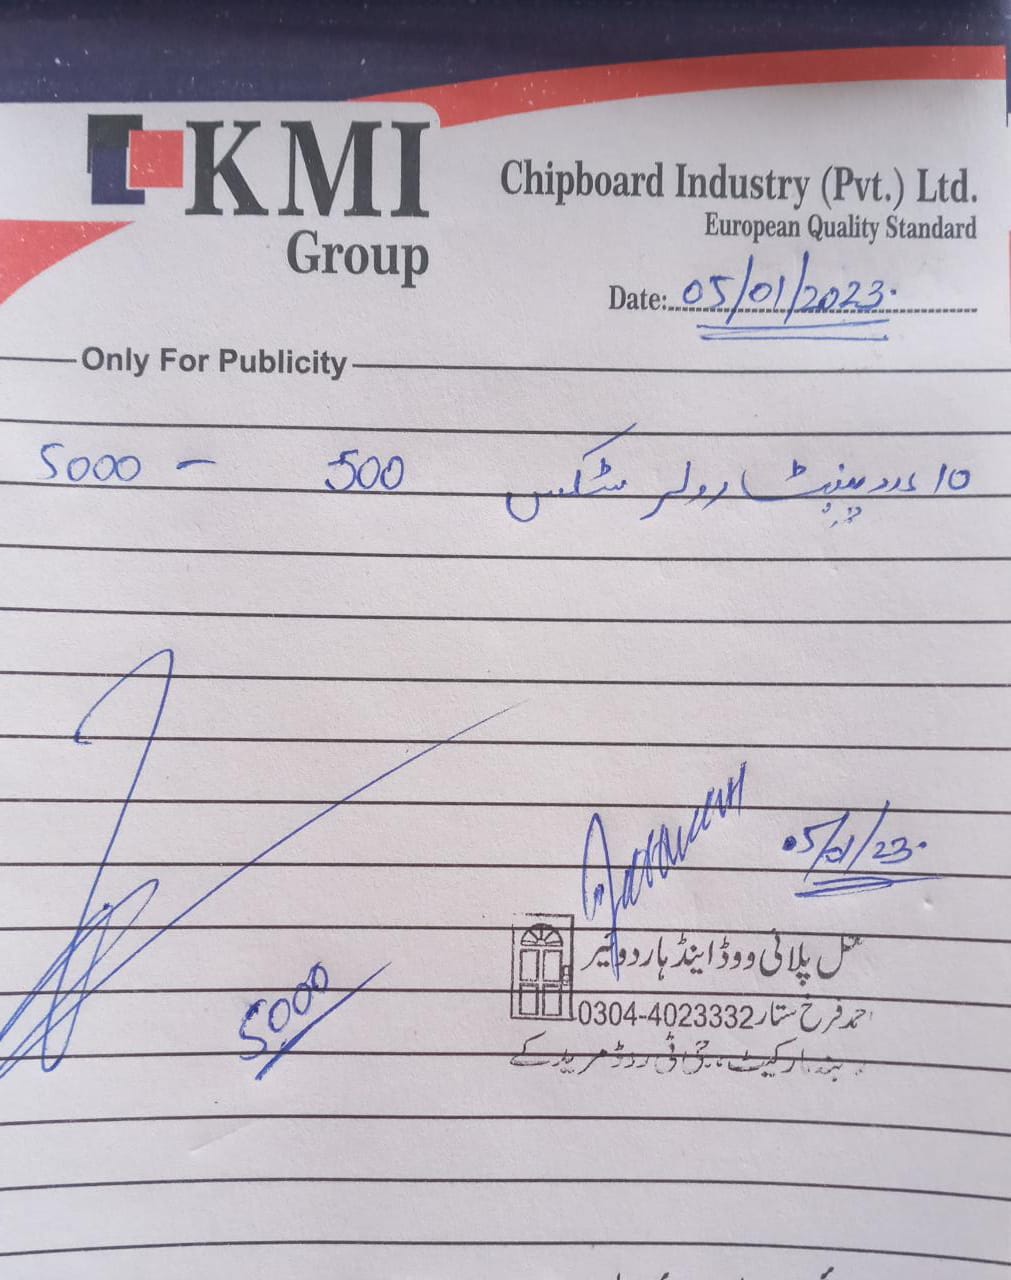 KMI
Group
Chipboard Industry (Pvt.) Ltd.
European Quality Standard
Date: 05/01/2023
Only For Publicity
10 عدد پینٹ رولر سٹکس 500 - 5000
05/01/23
5000
پلائی ووڈ اینڈ ہارڈوئیر
احمد فرخ ستار 0304-4023332
مارکیٹ، جی ٹی روڈ مریدکے